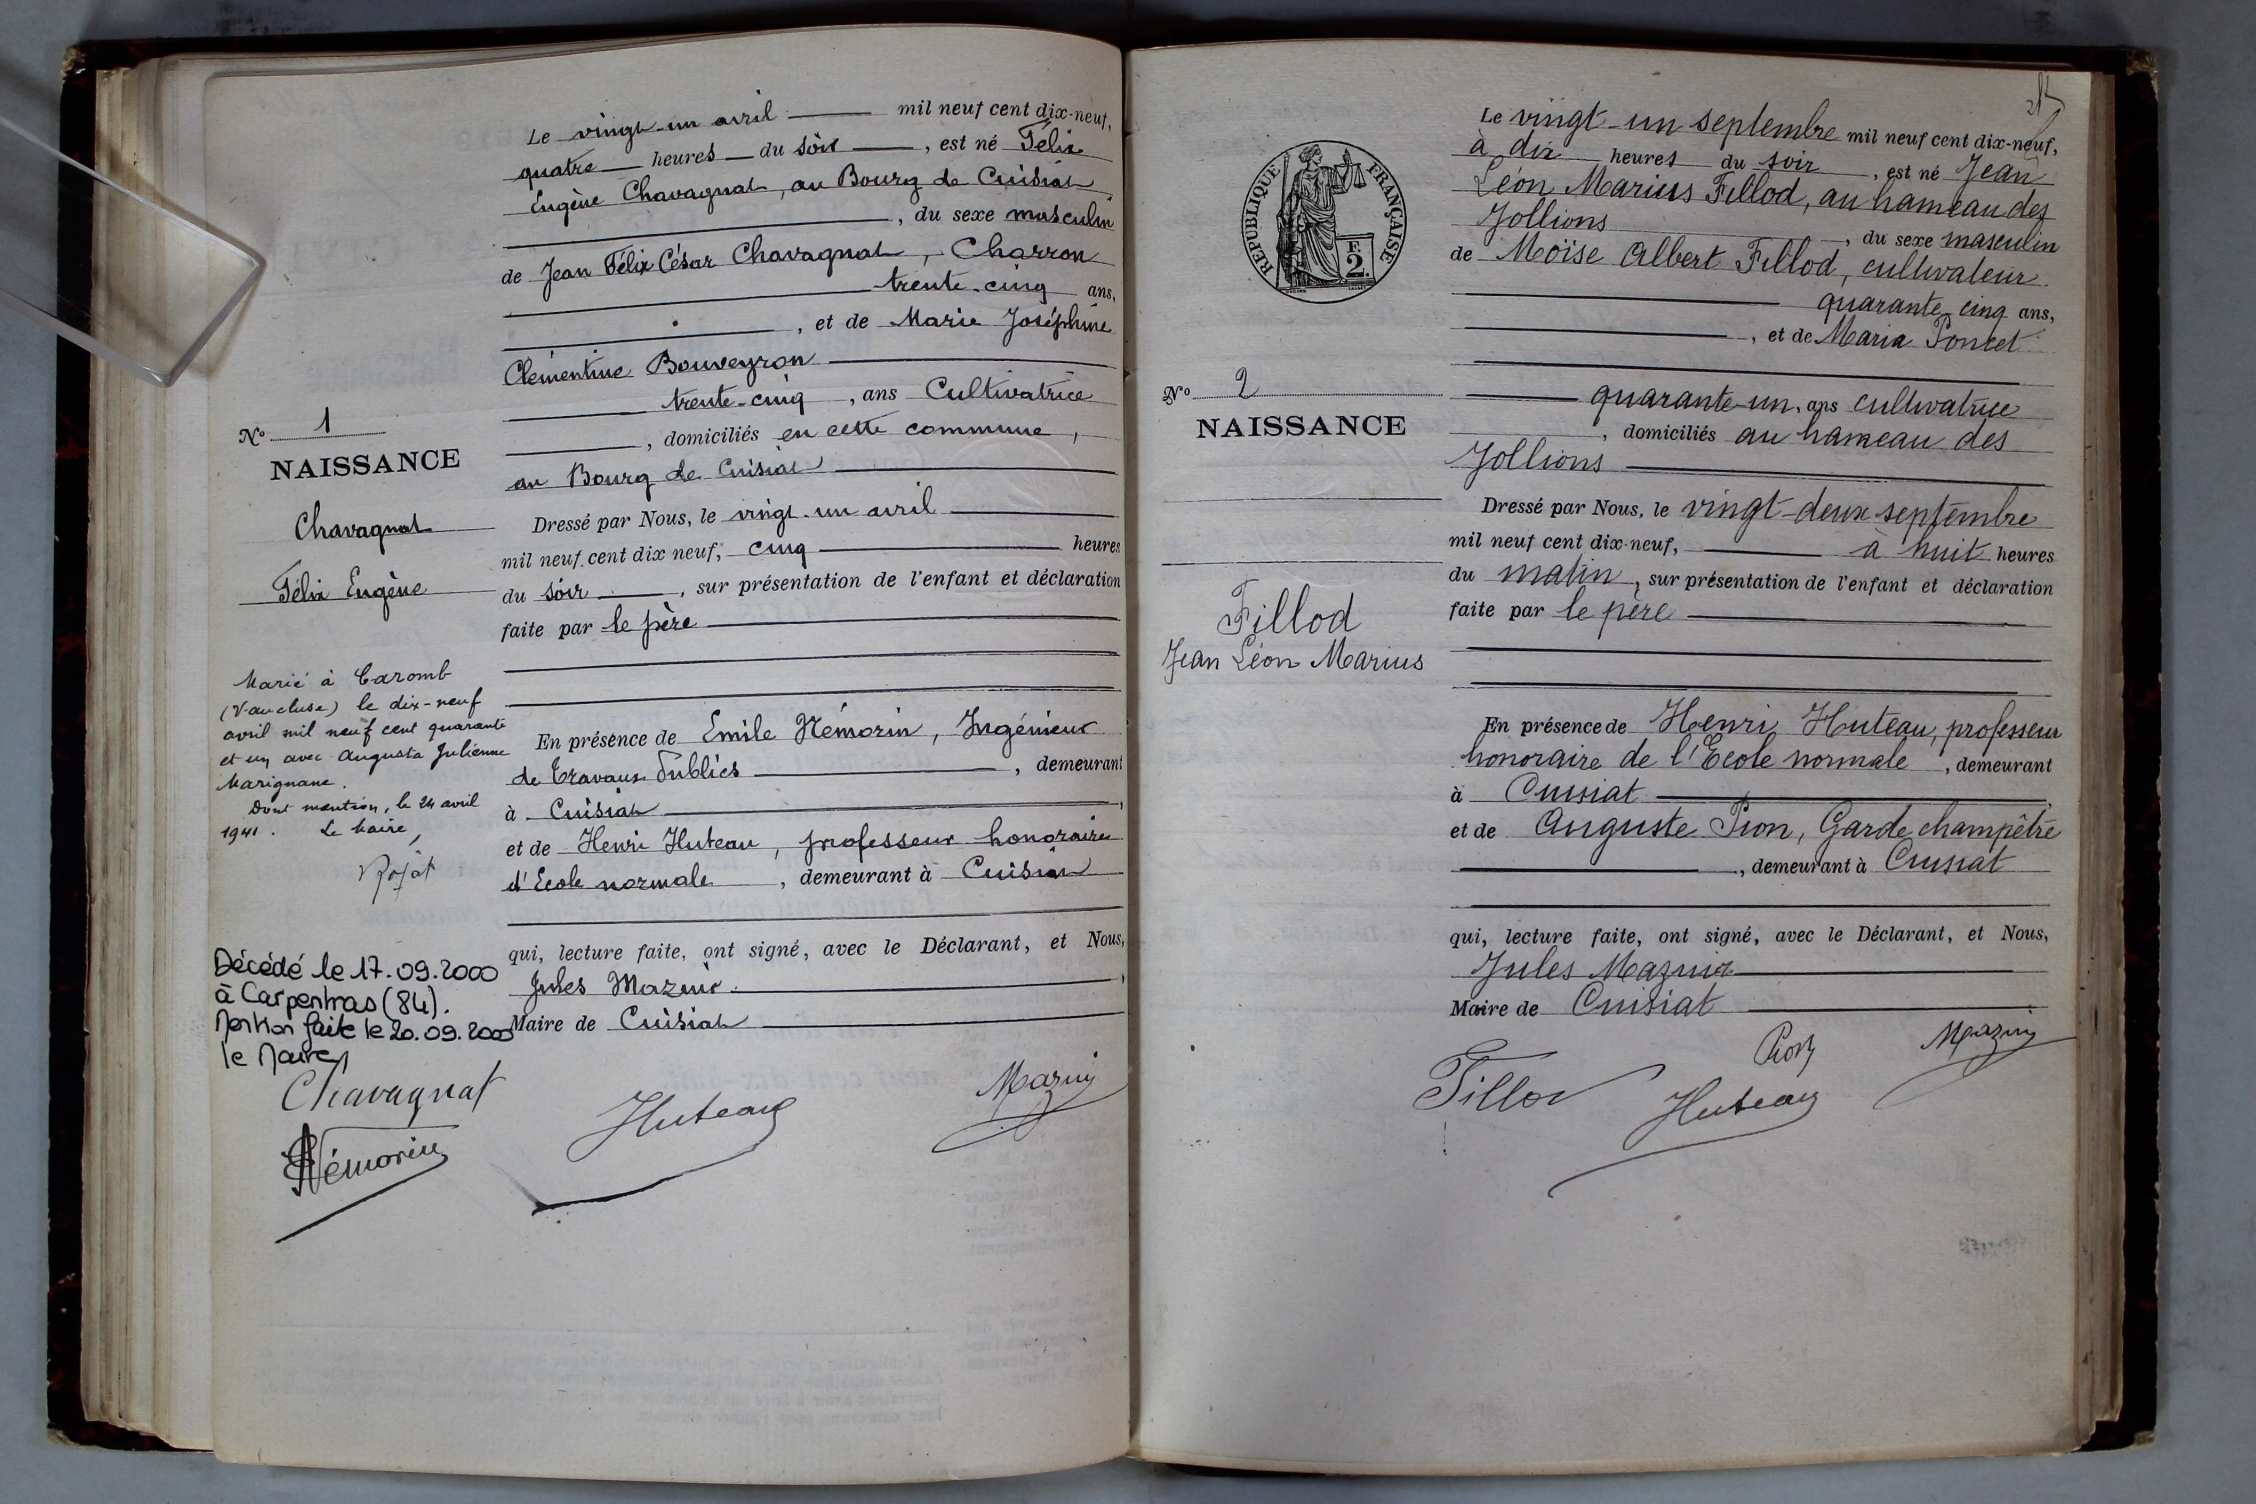 Le vingt-un avril mil neuf cent dix-neuf,
quatre heures du soir, est né Félix
Eugène Chavagnat, au Bourg de Cuisiat
, du sexe masculin
de Jean Félix César Chavagnat, Charron
trente-cinq ans,
, et de Marie Joséphine
Clémentine Bouveyron
trente-cinq, ans Cultivatrice
, domiciliés en cette commune,
au Bourg de Cuisiat
Dressé par Nous, le vingt-un avril
mil neuf cent dix neuf, cinq heures
du soir, sur présentation de l'enfant et déclaration
faite par le père
En présence de Emile Némorin, Ingénieur
de Travaux Publics, demeurant
à Cuisiat,
et de Henri Huteau, professeur honoraire
d'Ecole normale, demeurant à Cuisiat
qui, lecture faite, ont signé, avec le Déclarant, et Nous,
Jules Mazuir,
Maire de Cuisiat
No 1
NAISSANCE
Chavagnat
Félix Eugène
Marié à Caromb
(Vaucluse) le dix-neuf
avril mil neuf cent quarante
et un avec Augusta Julienne
Marignane.
Dont mention, le 24 avril
1941. Le Maire,
Décédé le 17.09.2000
à Carpentras (84).
Mention faite le 20.09.2000
le Maire,
Chavagnat
Huteau
Mazuir
Némorin
Le vingt-un septembre mil neuf cent dix-neuf,
à dix heures du soir, est né Jean
Léon Marius Fillod, au hameau des
Jollions, du sexe masculin
de Moïse Albert Fillod, cultivateur
quarante-cinq ans,
, et de Maria Poncet
quarante-un, ans cultivatrice
, domiciliés au hameau des
Jollions
Dressé par Nous, le vingt-deux septembre
mil neuf cent dix-neuf, à huit heures
du matin, sur présentation de l'enfant et déclaration
faite par le père
En présence de Henri Huteau, professeur
honoraire de l'Ecole normale, demeurant
à Cuisiat
et de Auguste Pion, Garde champêtre
, demeurant à Cuisiat
qui, lecture faite, ont signé, avec le Déclarant, et Nous,
Jules Mazuir
Maire de Cuisiat
RÉPUBLIQUE FRANÇAISE
F.
2.
No 2
NAISSANCE
Fillod
Jean Léon Marius
Fillod
Huteau
Pion
Mazuir